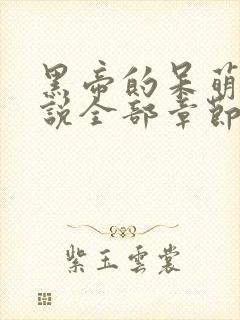 黑帝的呆萌
說全部章節
紫玉雲裳